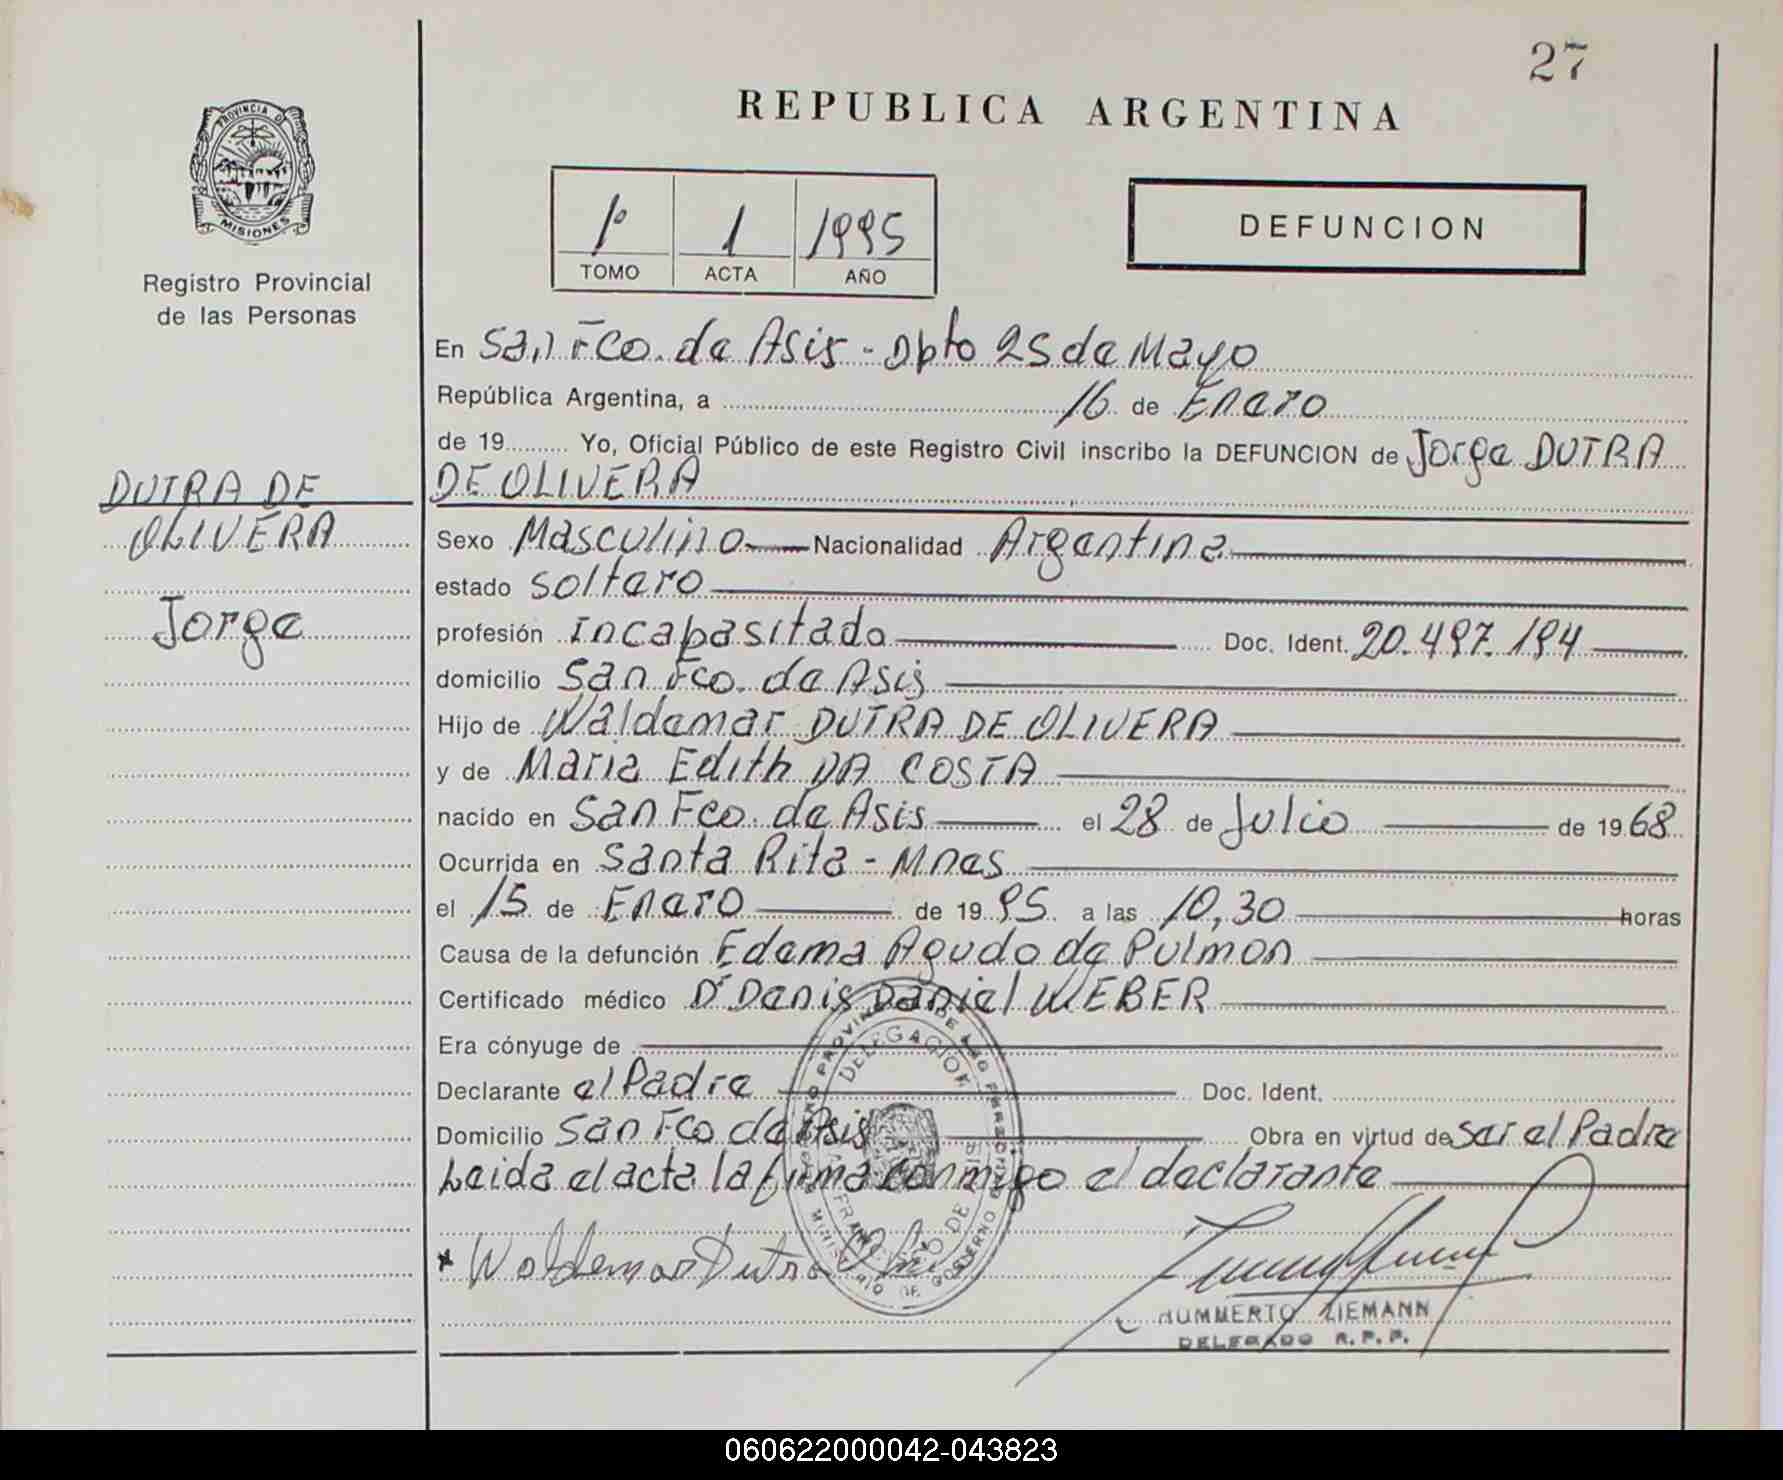 27
REPUBLICA ARGENTINA
PROVINCIA DE
MISIONES
Registro Provincial
de las Personas
1º 1 1995
TOMO ACTA AÑO
DEFUNCION
En San Fco. de Asis - Dpto 25 de Mayo
República Argentina, a 16 de Enero
de 19 Yo, Oficial Público de este Registro Civil inscribo la DEFUNCION de Jorge DUTRA
DE OLIVERA
DUTRA DE
OLIVERA
Jorge
Sexo Masculino Nacionalidad Argentina
estado soltero
profesión incapasitado Doc. Ident. 20.497.194
domicilio San Fco. de Asis
Hijo de Waldemar DUTRA DE OLIVERA
y de Maria Edith DA COSTA
nacido en San Fco. de Asis el 28 de Julio de 1968
Ocurrida en Santa Rita - Mnes
el 15 de Enero de 1995 a las 10,30 horas
Causa de la defunción Edema Agudo de Pulmon
Certificado médico Dr Denis Daniel WEBER
Era cónyuge de
Declarante el Padre Doc. Ident.
Domicilio San Fco de Asis Obra en virtud de ser el Padre
Leida el acta la firma conmigo el declarante
Waldemar Dutra
DELEGACION
MINISTERIO DE GOBIERNO
HUMBERTO ZIEMANN
DELEGADO R. P. P.
060622000042-043823